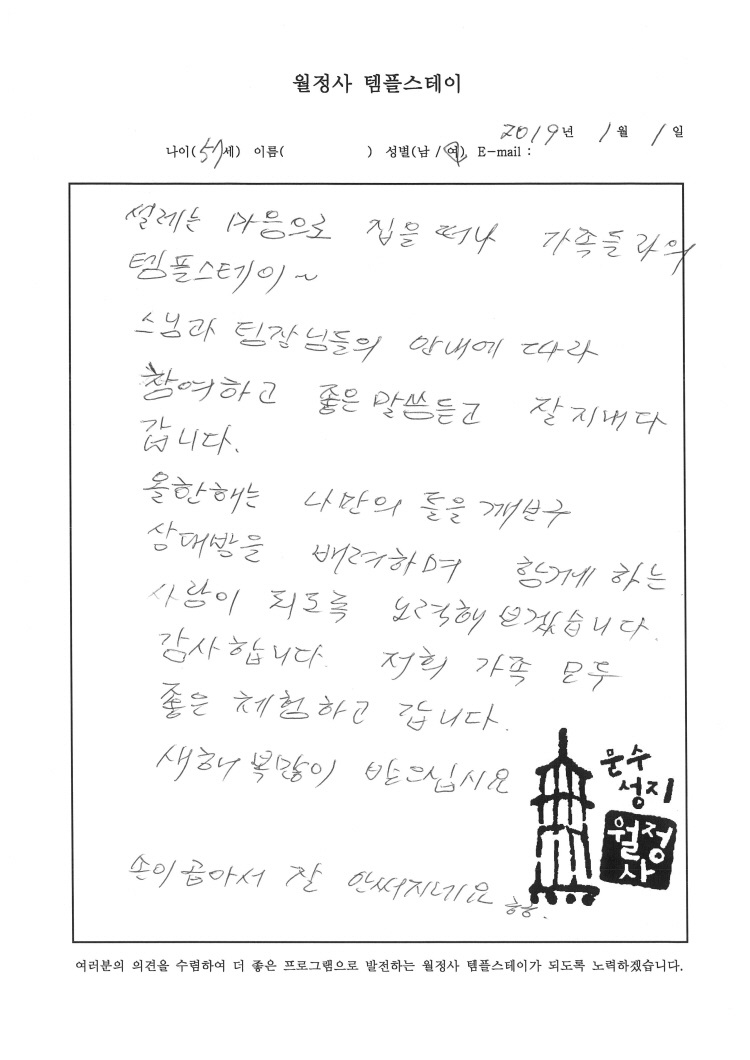 월정사 템플스테이
2019년 1월 1일
나이(57세) 이름( ) 성별(남 / 여) E-mail :
설레는 마음으로 집을 떠나 가족들과의
템플스테이~
스님과 팀장님들의 안내에 따라
참여하고 좋은 말씀듣고 잘 지내다
갑니다.
올한해는 나만의 틀을 깨보구
상대방을 배려하며 함께 하는
사람이 되도록 노력해 보겠습니다.
감사합니다. 저희 가족 모두
좋은 체험하고 갑니다.
새해 복많이 받으십시요
문수
성지
월정
사
손이 곱아서 잘 안써지네요 ㅎㅎ.
여러분의 의견을 수렴하여 더 좋은 프로그램으로 발전하는 월정사 템플스테이가 되도록 노력하겠습니다.